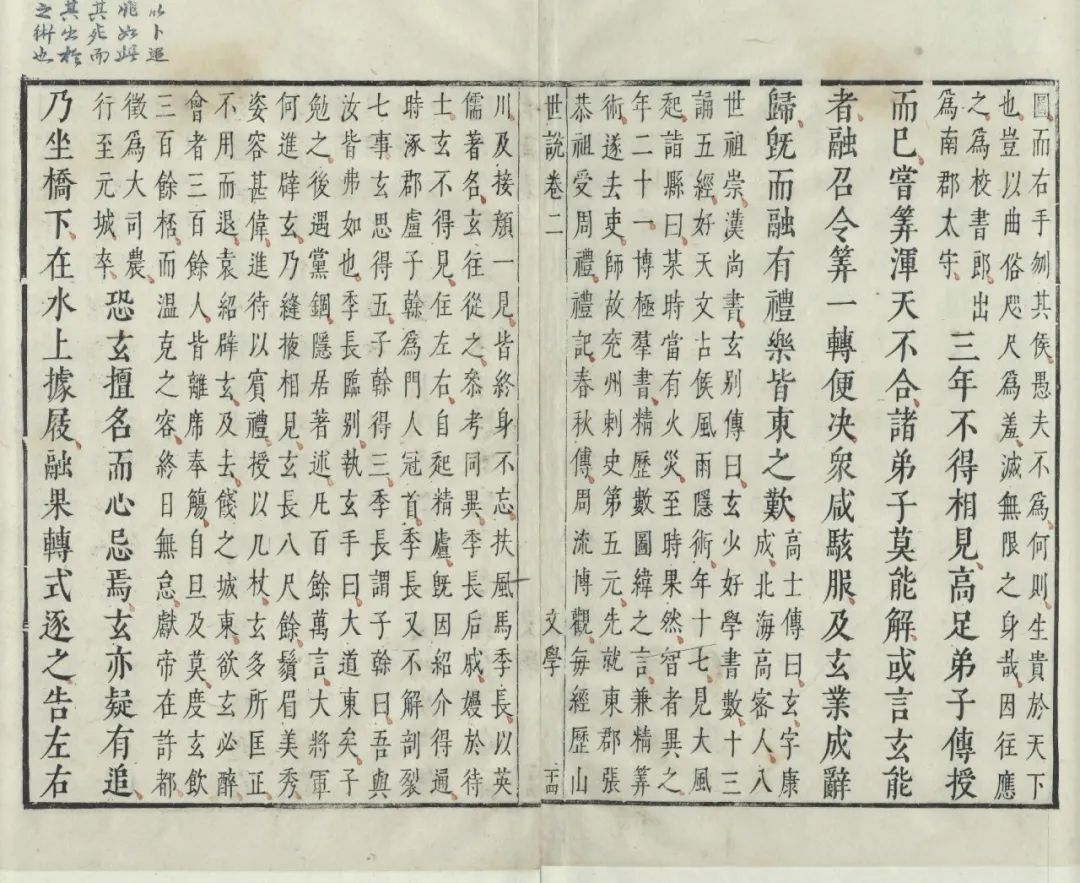 圖而右手刎其侯愚夫不爲何則生貴於天下
也豈以曲俗咫尺爲羞滅無限之身哉因往應
之爲校書郎出
爲南郡太守
三年不得相見高足弟子傳授
而已嘗筭渾天不合諸弟子莫能解或言玄能
者融召令筭一轉便决衆咸駭服及玄業成辭
歸旣而融有禮樂皆東之歎
高士傳曰玄字康
成北海高密人八
世祖崇漢尚書玄别傳曰玄少好學書數十三
誦五經好天文占候風雨隱術年十七見大風
起詣縣曰某時當有火災至時果然智者異之
年二十一博極羣書精歷數圖緯之言兼精筭
術遂去吏師故兖州刺史第五元先就東郡張
恭祖受周禮禮記春秋傳周流博觀每經歷山
世說卷二 文學 十四
川及接顔一見皆終身不忘扶風馬季長以英
儒著名玄往從之叅考同異季長后戚嫚於待
士玄不得見住左右自起精廬旣因紹介得通
時涿郡盧子榦爲門人冠首季長又不解剖裂
七事玄思得五子榦得三季長謂子榦曰吾與
汝皆弗如也季長臨别執玄手曰大道東矣子
勉之後遇黨錮隱居著述凡百餘萬言大將軍
何進辟玄乃縫掖相見玄長八尺餘鬚眉美秀
姿容甚偉進待以賔禮授以几杖玄多所匡正
不用而退袁紹辟玄及去餞之城東欲玄必醉
會者三百餘人皆離席奉觴自旦及莫度玄飲
三百餘桮而温克之容終日無怠獻帝在許都
徵爲大司農
行至元城卒
恐玄擅名而心忌焉玄亦疑有追
乃坐橋下在水上據屐融果轉式逐之告左右
以卜追
其死而
其出於
之術也